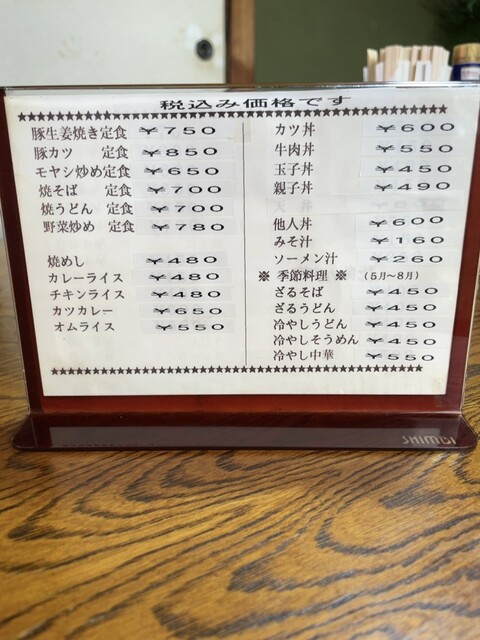 税込み価格です
★★★★★★★★★★★★★★★★★★★★★★★★★★★★★★★★★★★★★★★★★★★★★★★★
豚生姜焼き定食 ￥750
豚カツ 定食 ￥850
モヤシ炒め定食 ￥650
焼そば 定食 ￥700
焼うどん 定食 ￥700
野菜炒め 定食 ￥780
焼めし ￥480
カレーライス ￥480
チキンライス ￥480
カツカレー ￥650
オムライス ￥550
カツ丼 ￥600
牛肉丼 ￥550
玉子丼 ￥450
親子丼 ￥490
他人丼 ￥600
みそ汁 ￥160
ソーメン汁 ￥260
※ 季節料理 ※ （5月〜8月）
ざるそば ￥450
ざるうどん ￥450
冷やしうどん ￥450
冷やしそうめん ￥450
冷やし中華 ￥550
★★★★★★★★★★★★★★★★★★★★★★★★★★★★★★★★★★★★★★★★★★★★★★★★
SHIMBI